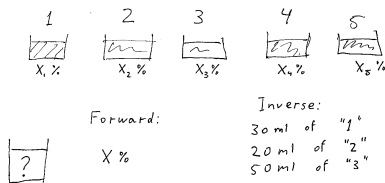 1 2 3 4 5
X₁ % X₂ % X₃ % X₄ % X₅ %
Forward:
X %
?
Inverse:
30 ml of "1"
20 ml of "2"
50 ml of "3"